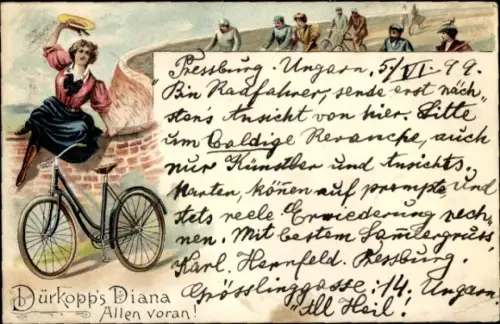 Pressburg. Ungarn, 5/VI. 99.
"Bin Radfahrer, sende erst näch-
stens Ansicht von hier. Bitte
um baldige Revanche, auch
nur Künstler und Ansichts-
karten, können auf prompte und
stets reele Erwiederung rech-
nen. Mit bestem Sammlergruss
Karl. Herrnfeld. Pressburg.
Grösslinggasse. 14. Ungarn.
"All Heil!
Dürkopp's Diana
Allen voran!